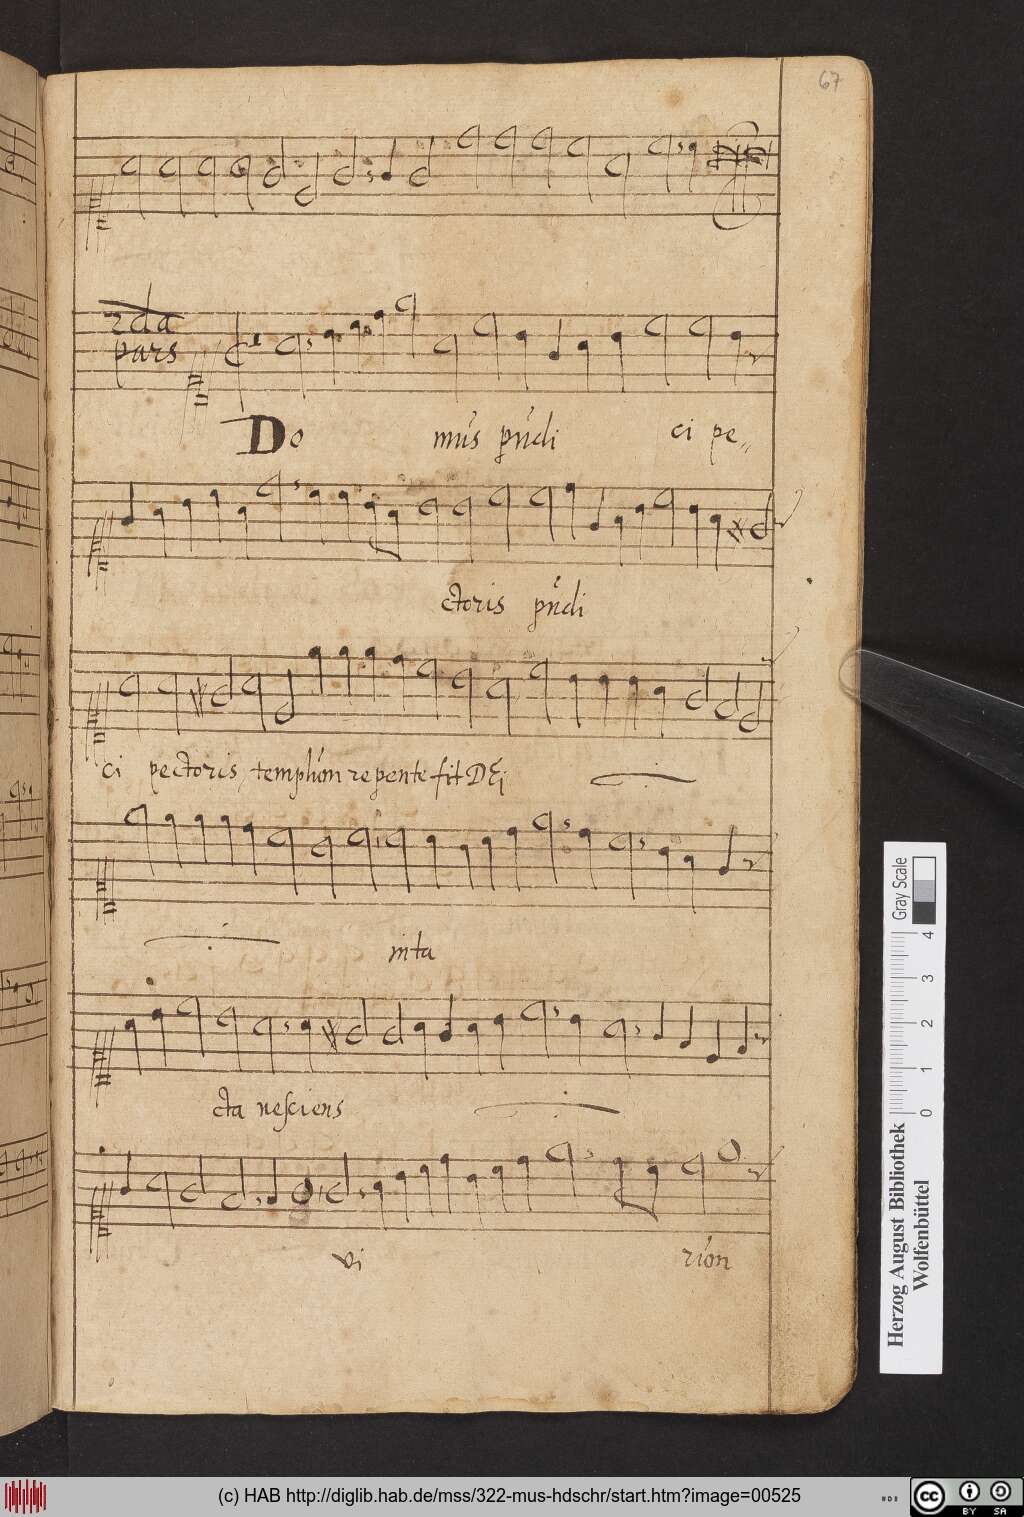 67
2da
pars
Do mus pudi ci pe-
ctoris pudi
ci pectoris templum repente fit DEi
inta
cta nesciens
vi rum
Gray Scale
0 1 2 3 4
Herzog August Bibliothek
Wolfenbüttel
(c) HAB http://diglib.hab.de/mss/322-mus-hdschr/start.htm?image=00525
cc BY SA